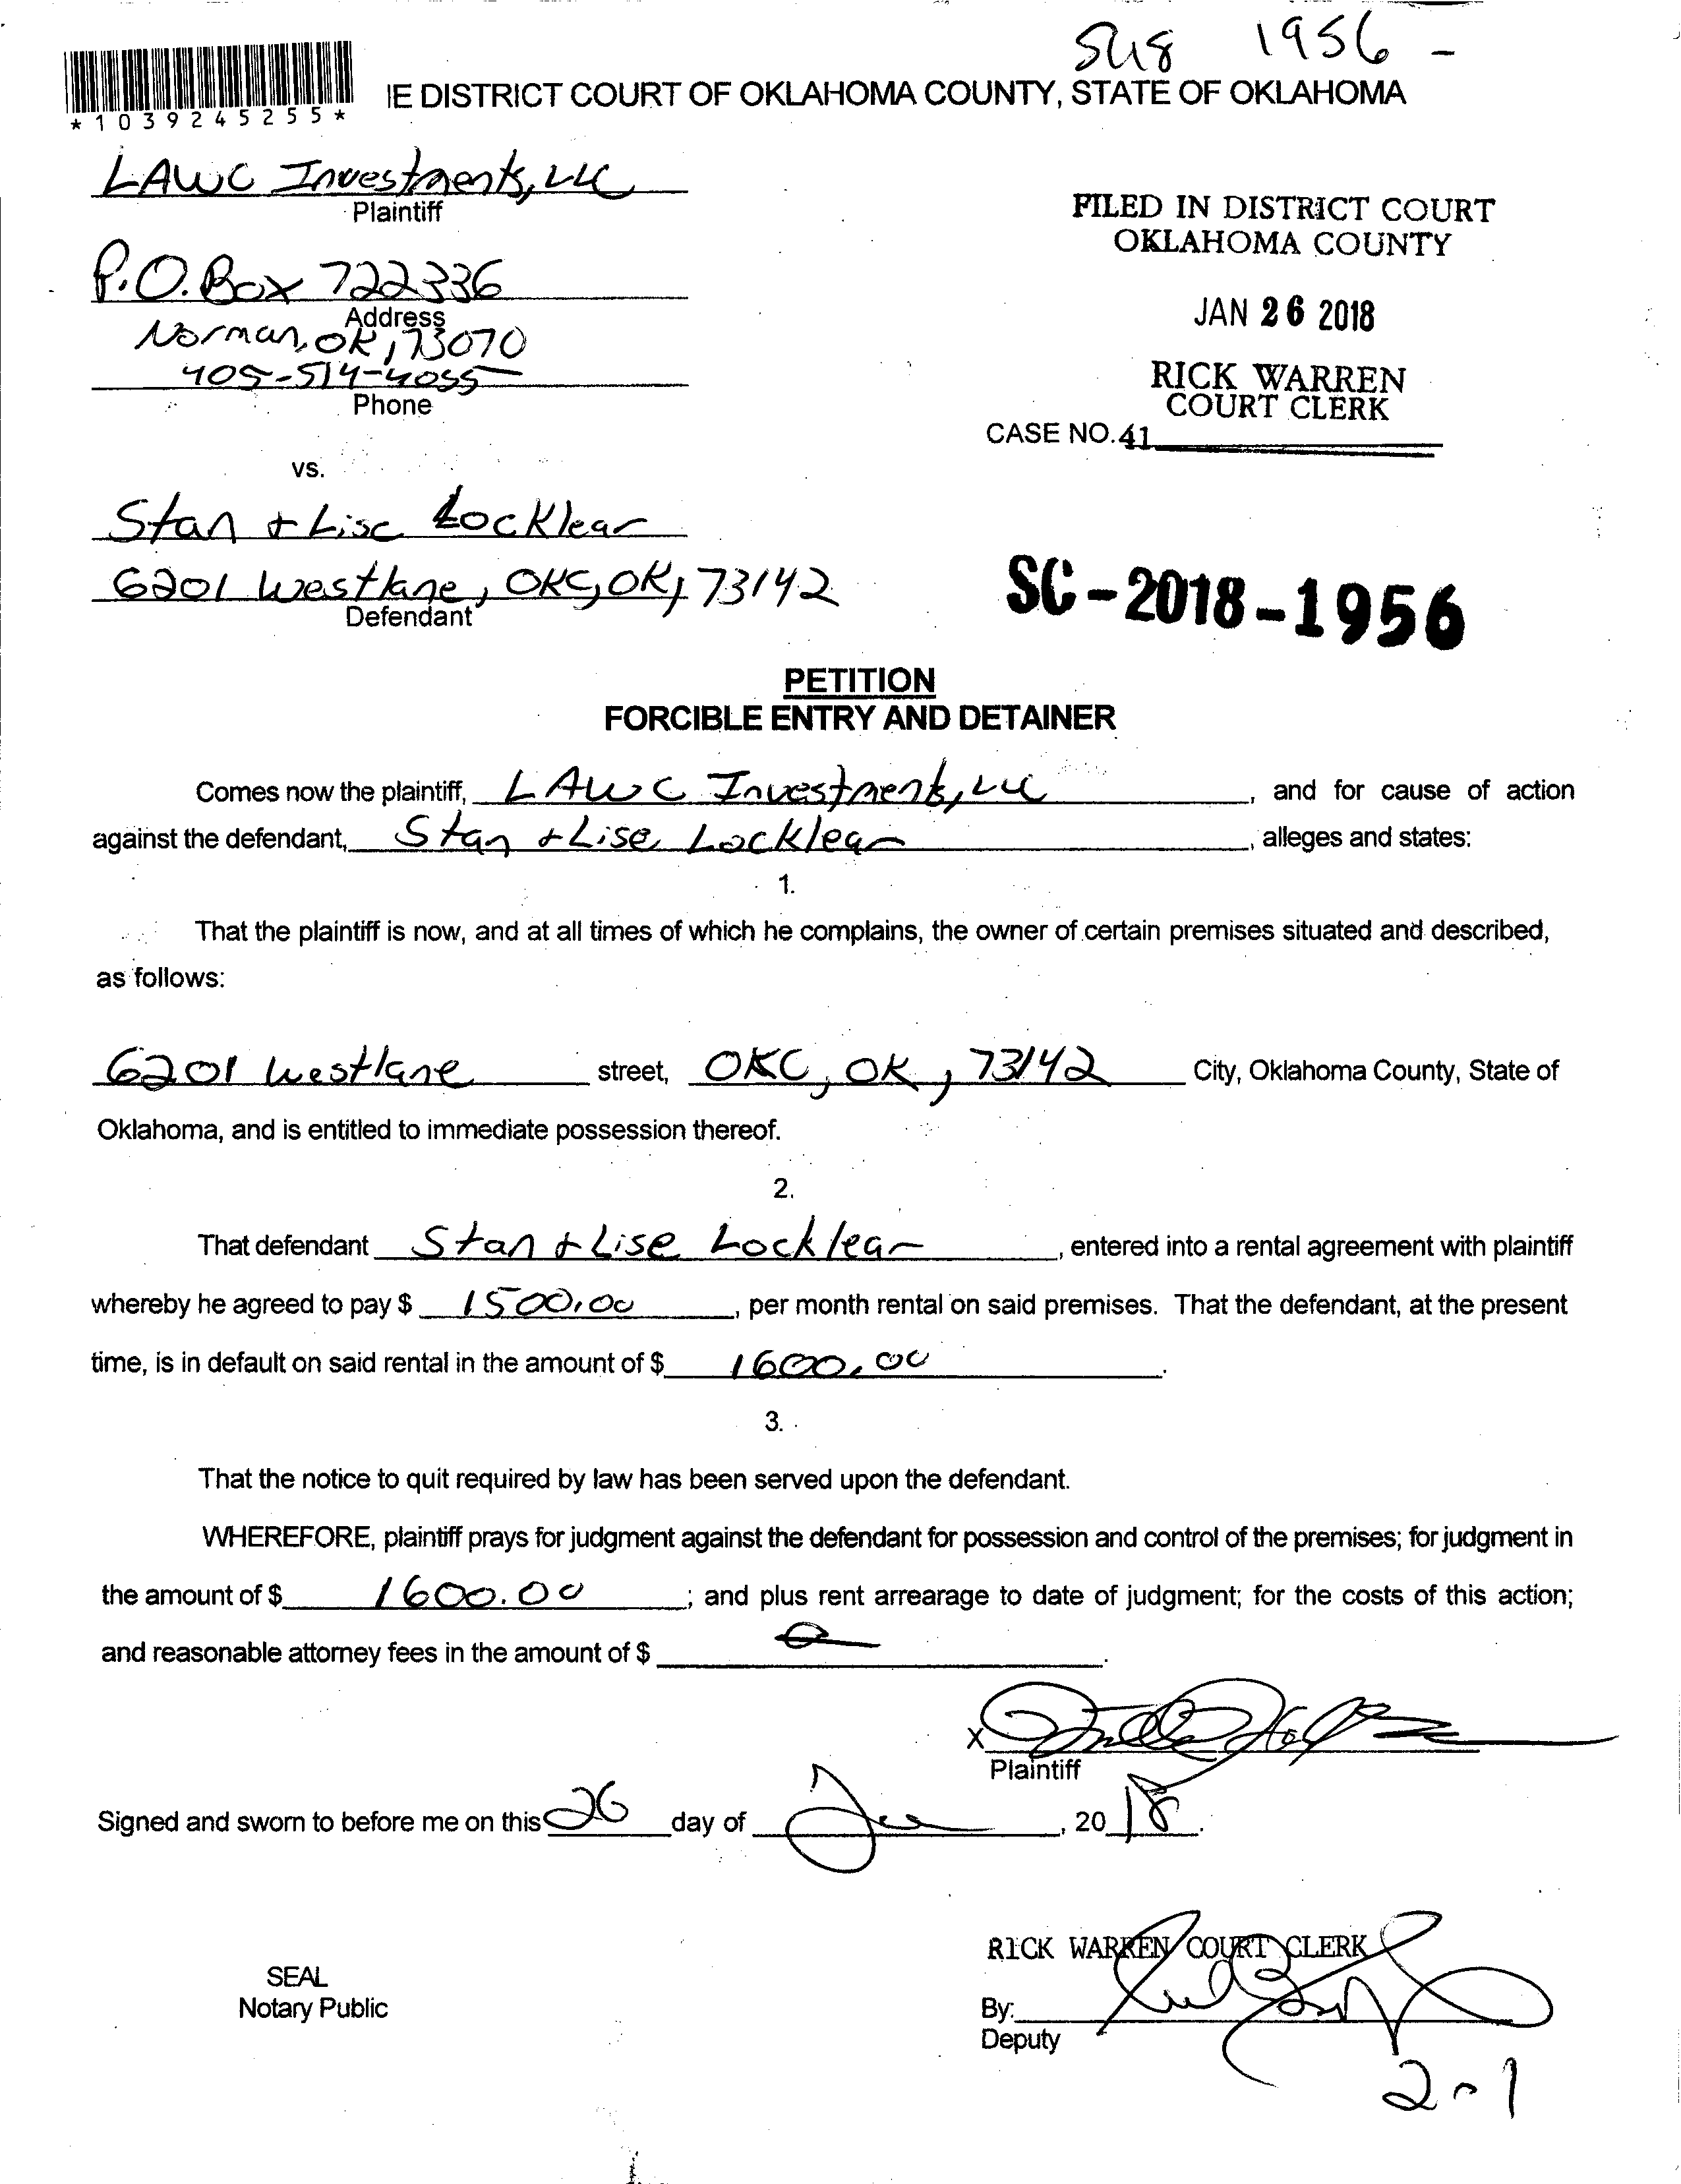 1956 -
*1039245255*
IE DISTRICT COURT OF OKLAHOMA COUNTY, STATE OF OKLAHOMA
LAWC Investments, LLC
Plaintiff
P.O. Box 722336
Address
Norman, OK, 73070
405-514-4055
Phone
FILED IN DISTRICT COURT
OKLAHOMA COUNTY
JAN 26 2018
RICK WARREN
COURT CLERK
CASE NO. 41
vs.
Stan + Lise Locklear
6201 Westlane, OKC, OK, 73142
Defendant
SC-2018-1956
PETITION
FORCIBLE ENTRY AND DETAINER
Comes now the plaintiff, LAWC Investments, LLC, and for cause of action
against the defendant, Stan + Lise Locklear, alleges and states:
1.
That the plaintiff is now, and at all times of which he complains, the owner of certain premises situated and described,
as follows:
6201 Westlane street, OKC, OK, 73142 City, Oklahoma County, State of
Oklahoma, and is entitled to immediate possession thereof.
2.
That defendant Stan + Lise Locklear, entered into a rental agreement with plaintiff
whereby he agreed to pay $ 1500.00, per month rental on said premises. That the defendant, at the present
time, is in default on said rental in the amount of $ 1600.00.
3.
That the notice to quit required by law has been served upon the defendant.
WHEREFORE, plaintiff prays for judgment against the defendant for possession and control of the premises; for judgment in
the amount of $ 1600.00; and plus rent arrearage to date of judgment; for the costs of this action;
and reasonable attorney fees in the amount of $ 0.
X
Plaintiff
Signed and sworn to before me on this 26 day of Jan, 2018.
RICK WARREN COURT CLERK
SEAL
Notary Public
By:
Deputy
2-1